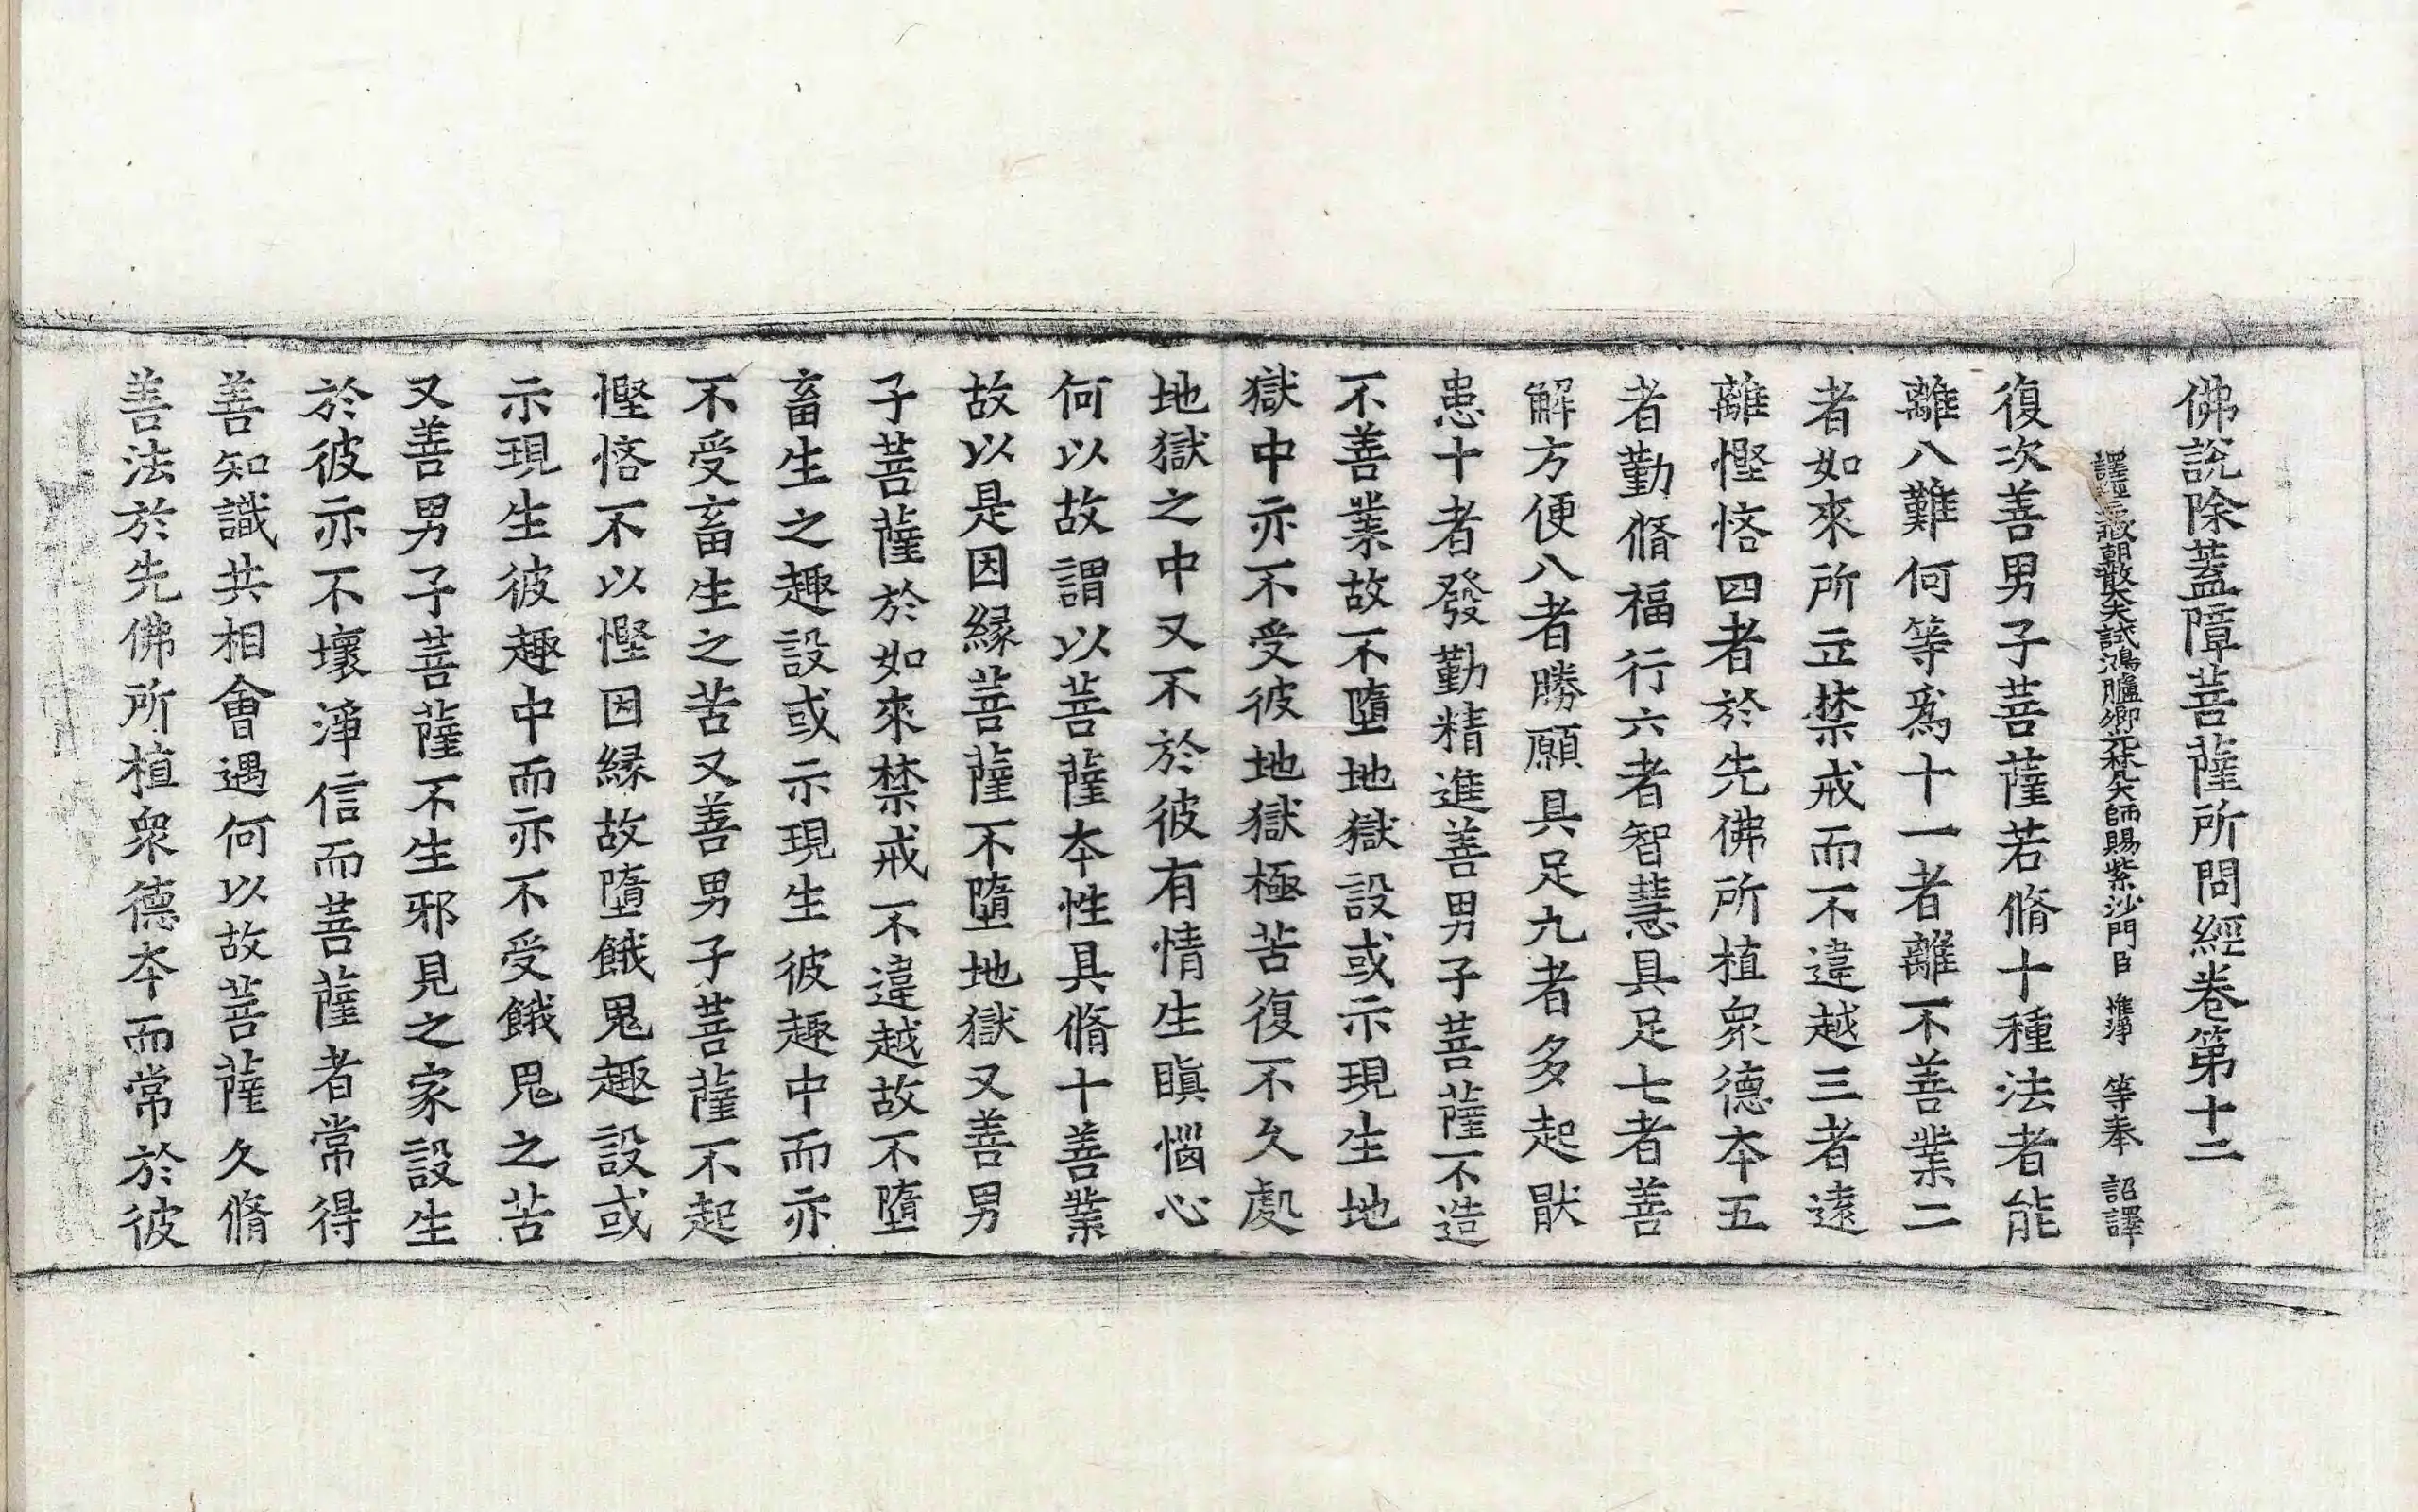 佛說除蓋障菩薩所問經卷第十二
譯經三藏朝散大夫試鴻臚卿光梵大師賜紫沙門臣惟淨等奉詔譯
復次善男子菩薩若脩十種法者能
離八難何等爲十一者離不善業二
者如來所立禁戒而不違越三者遠
離慳悋四者於先佛所植衆德夲五
者勤脩福行六者智慧具足七者善
解方便八者勝願具足九者多起猒
患十者發勤精進善男子菩薩不造
不善業故不墮地獄設或示現生地
獄中亦不受彼地獄極苦復不久處
地獄之中又不於彼有情生瞋惱心
何以故謂以菩薩夲性具脩十善業
故以是因緣菩薩不墮地獄又善男
子菩薩於如來禁戒不違越故不墮
畜生之趣設或示現生彼趣中而亦
不受畜生之苦又善男子菩薩不起
慳悋不以慳因緣故墮餓鬼趣設或
示現生彼趣中而亦不受餓鬼之苦
又善男子菩薩不生邪見之家設生
於彼亦不壞淨信而菩薩者常得
善知識共相會遇何以故菩薩久脩
善法於先佛所植衆德夲而常於彼